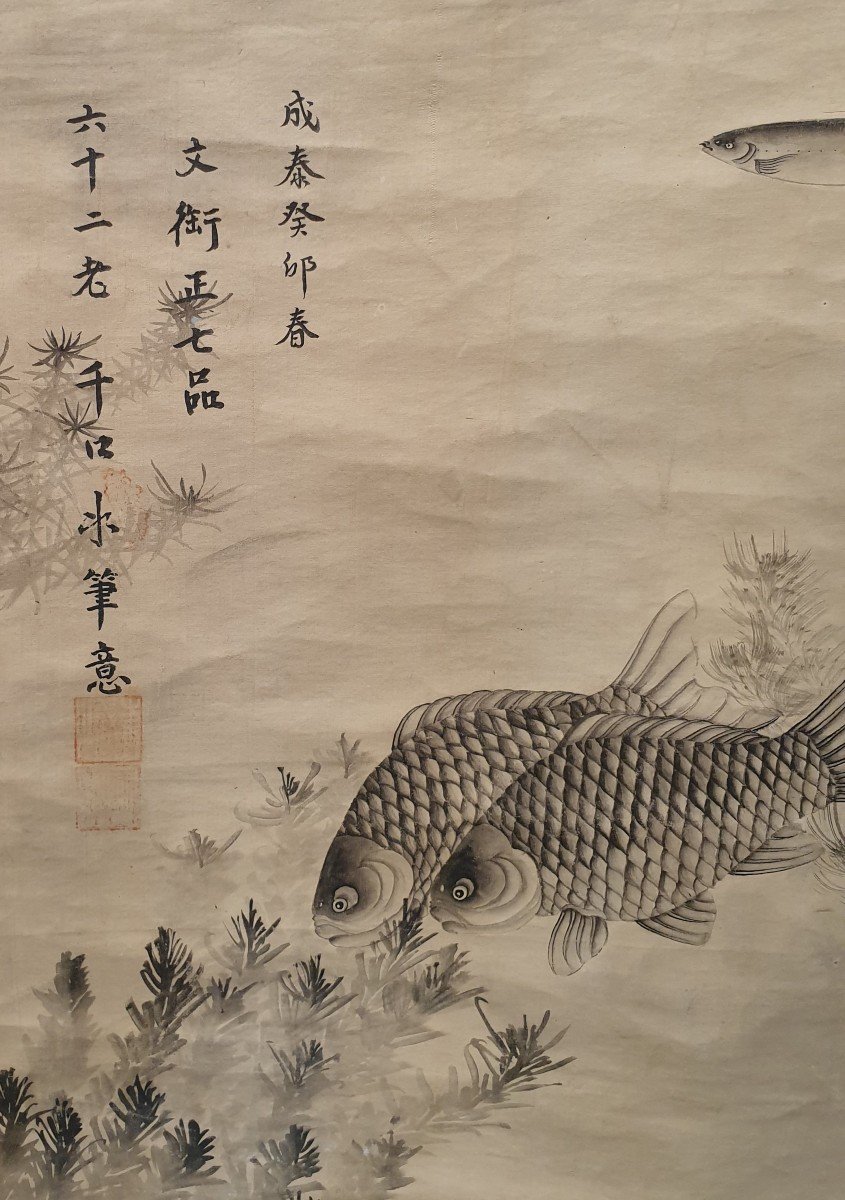 成泰癸卯春
文衔正七品
六十二老千口氷筆意